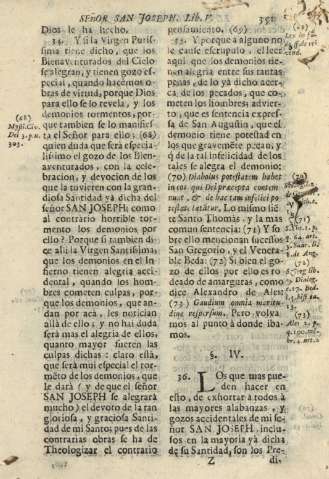 SEÑOR SAN JOSEPH. Lib. V
391
Dios le ha hecho.
34. Y si la Virgen Purís-
sima tiene dicho, que los
Bienaventurados del Cielo
se alegran, y tienen gozo es-
pecial, quando hacemos o-
bras de virtud, porque Dios
para ello se lo revela, y los
demonios tormentos, por-
que tambien se lo manifies-
ta el Señor para ello; (68)
quien duda que será especia-
lissimo el gozo de los Bien-
aventurados, con la cele-
bracion, y devocion de los
que la tuvieren con la gran-
diosa Santidad yà dicha del
señor SAN JOSEPH; como
al contrario horrible tor-
mento los demonios por
ello? Porque si tambien di-
ce allí la Virgen Santissima,
que los demonios en el In-
fierno tienen alegria acci-
dental, quando los hom-
bres cometen culpas, por-
que los demonios, que an-
dan por acá, les notician
allá de ello; y no hai duda
será mas el alegria de ellos,
quanto mayor fueren las
culpas dichas: claro està,
que será mui especial el tor-
mēto de los demonios, que
le dará (y de que el señor
SAN JOSEPH se alegrará
mucho) el devoto de la ran-
gloriosa, y graciosa Santi-
dad de mi Santo; pues de las
contrarias obras se ha de
Theologizar el contrario
(68)
Mysti. Civ.
Dei 3. p. n.
303.
pensamiento. (69)
35. Y porque a alguno no
le cause escrupulo, el leer
aqui que los demonios tie-
nen alegria entre sus tantas
penas, de lo yà dicho acer-
ca, de los pecados, que co-
meten los hombres; advier-
to, que es sentencia expres-
sa de San Augustin, que el
demonio tiene potestad en
los que gravemēte pecan; y
q̃ de la tal infelicidad de los
tales se alegra el demonio:
(70) Diabolus potestatem habet
in eos qui Dei præcepta contem-
nunt, & de hac tam infelici po-
testate lætatur. Lo mismo siē-
te Santo Thomas, y la mas
comun sentencia: (71) Y so-
bre ello mencionan fuentos
San Gregorio, y el Venera-
ble Beda: (72) Si bien el go-
zo de ellos por ello es ro-
deado de amarguras, como
dice Alexandro de Ales:
(73) Gaudium omnia maritu-
dine respersum. Pero volva-
mos al punto à donde iba-
mos.
§. IV.
36. LOs que mas pue-
den hacer en
esto, de exhortar a todos à
las mayores alabanzas, y
gozos accidentales de mi se-
ñor SAN JOSEPH, inclu-
sos en la mayoría yà dicha
de su Santidad, son los Pre-
Z
di-
(70)
(71)
(72)
(73)